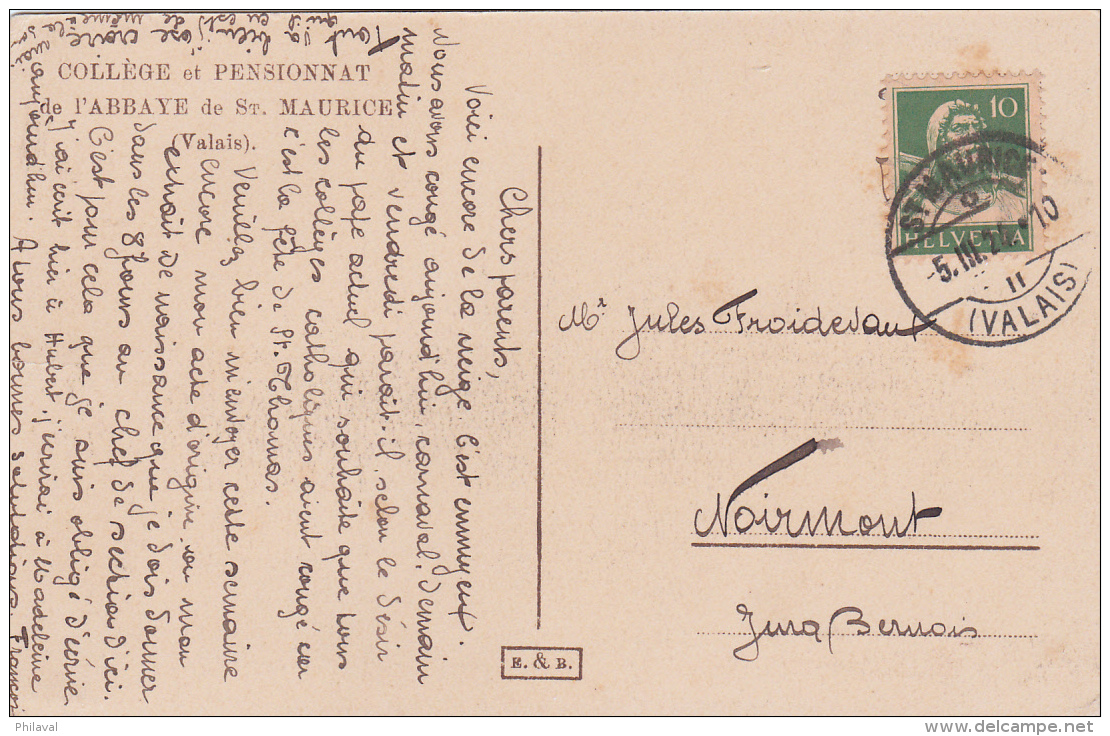 COLLÈGE et PENSIONNAT
de l'ABBAYE de St. MAURICE
(Valais).
Chers parents,
Voici encore de la neige c'est ennuyeux
Nous avons congé aujourd'hui, carnaval. Demain
matin et vendredi parait-il, selon le désir
du pape actuel qui souhaite que tous
les collèges catholiques aient congé car
c'est la fête de St. Thomas.
Veuillez bien m'envoyer cette semaine
encore mon acte d'origine ou mon
extrait de naissance que je dois donner
dans les 8 jours au chef de section d'ici.
C'est pour cela que je suis obligé d'écrire
J'ai écrit hier à Hubert j'écrirai à Madeleine
aujourd'hui. A tous bonnes salutations. François
Tout va bien, j'ose croire
qu'il en est de même
HELVETIA
10
ST. MAURICE
-5.III.24.-10
II
(VALAIS)
Mr Jules Froidevaux
Noirmont
Jura Bernois
E. & B.
Philaval
delcampe.net